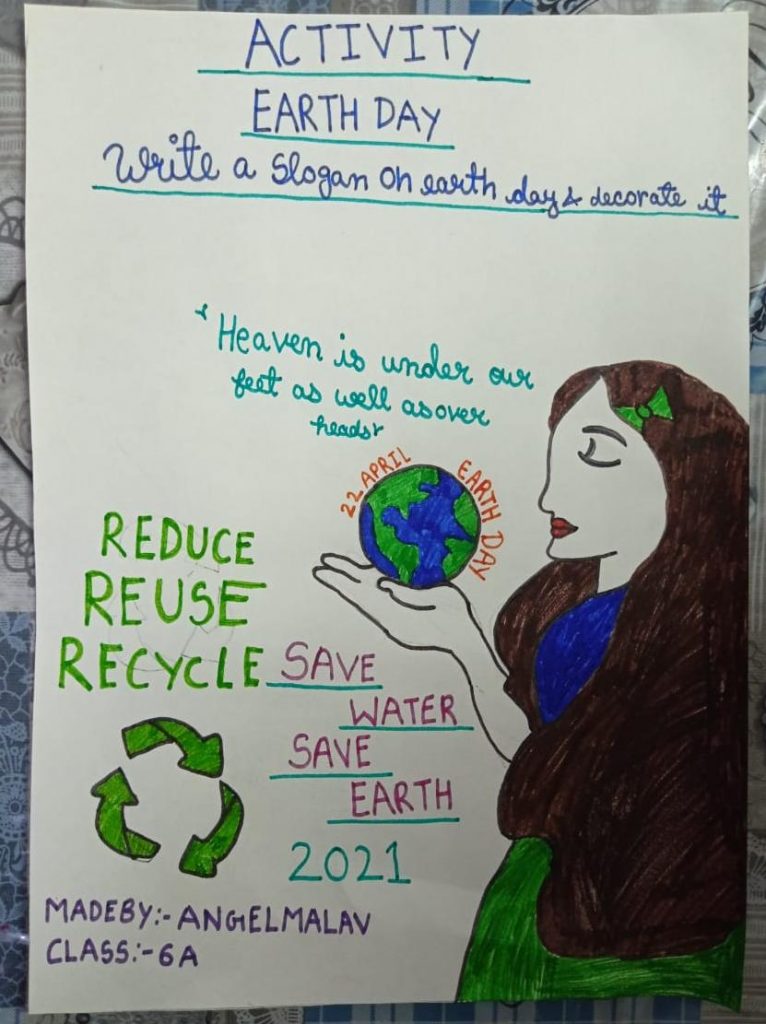 ACTIVITY
EARTH DAY
Write a Slogan On earth day & decorate it
Heaven is under our
feet as well as over
heads
22 APRIL EARTH DAY
REDUCE
REUSE
RECYCLE
SAVE
WATER
SAVE
EARTH
2021
MADEBY:- ANGELMALAV
CLASS:- 6A